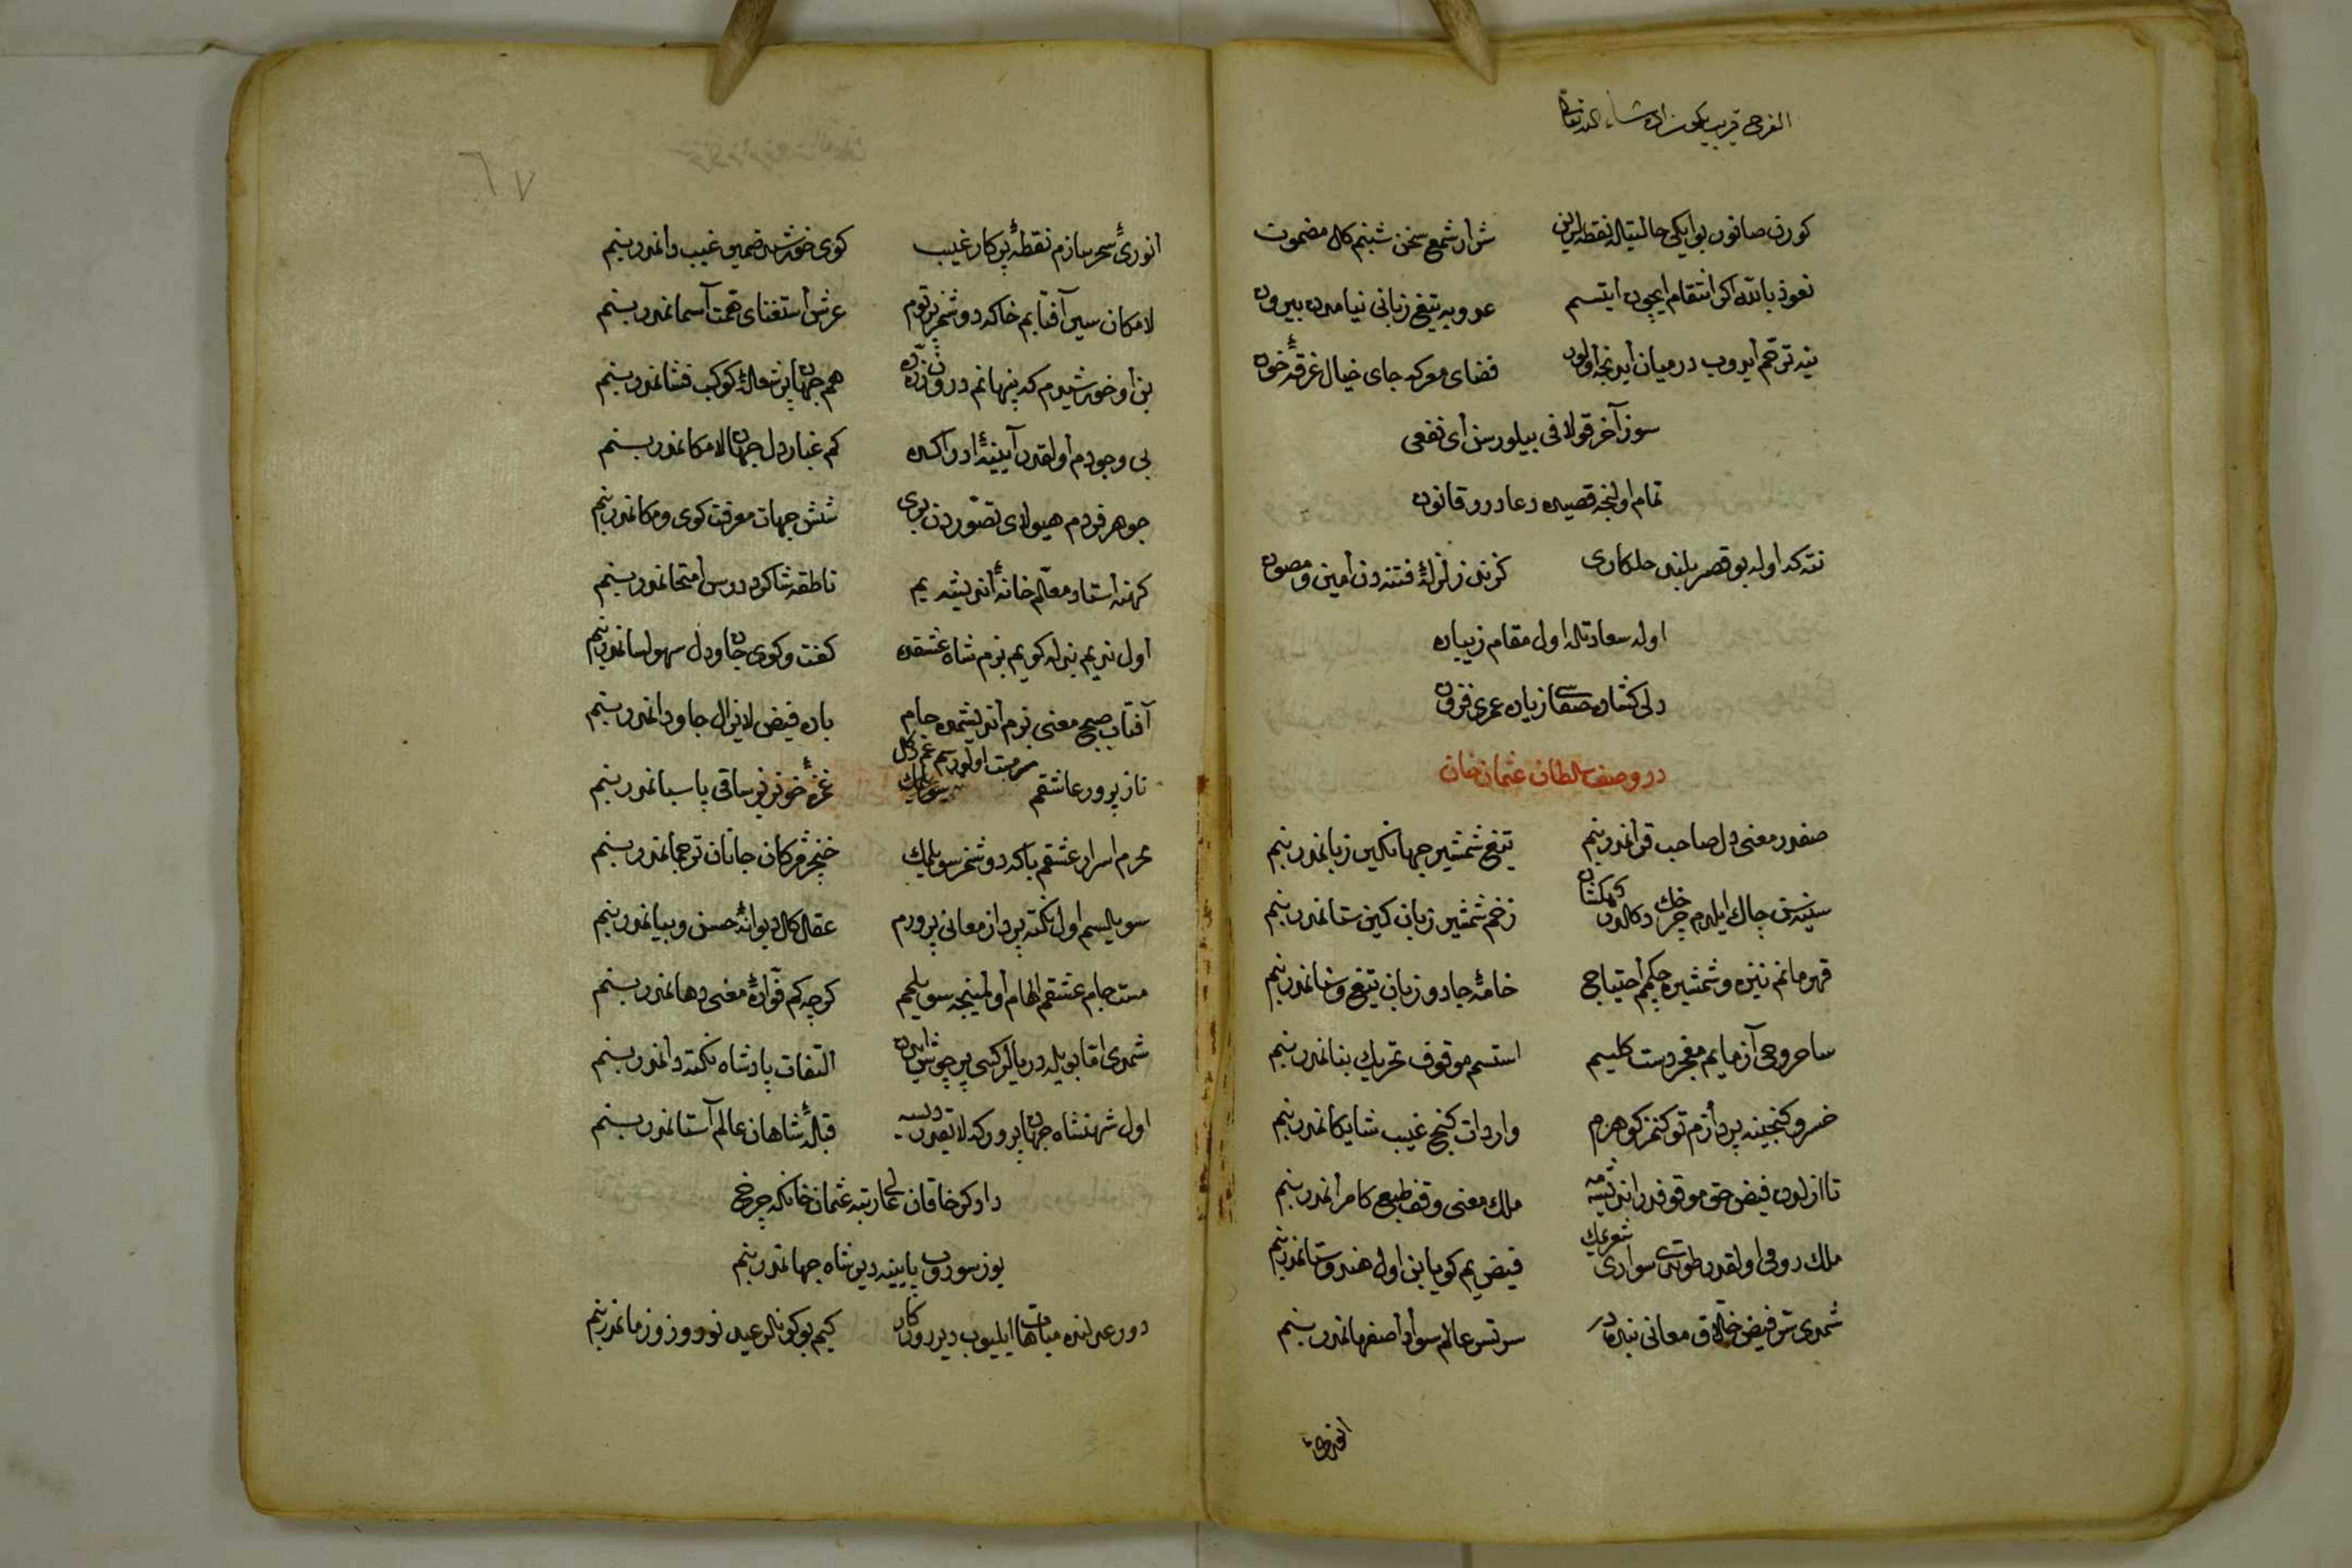 الفرجی قریب یکون ان شاء الله تعالی
کورن صانور بو ایکی حالتیله نقطه لرین شرار شمع سخن شبنم کل مضمون
نعوذ بالله اکر انتقام ایچون ایتسم عدویه تیغ زبانی نیامدن بیرون
ینه ترحم ایدوب در میان ایدنجه اولور فضای معرکه جای خیال غرقۀ خون
سوز آخر قولافی بیلورسن ای نفعی
تمام اولنجه قصیده دعادرر قانون
نته که اوله بو قصر بلند حلکاری کزند زلزلۀ فتنه دن امین و مصون
اوله سعادتله اول مقام زیباده
دلی کشاده صفاسی زیاده عمری فزون
در وصف سلطان عثمان خان
صفدر معنی دل صاحب قرانمدر بنم تیغ شمشیر جهانکیرین زبانمدر بنم
سینه سن چاک ایلدم چرخک دکلدر کهکشان زخم شمشیر زبان کین ستانمدر بنم
قهرمانم نیزه و شمشیره چکمم احتیاجی خامۀ جادو زبان تیغ و سنانمدر بنم
ساحر وحی آزمایم معجز دست کلیم استسم موقوف تحریک بنانمدر بنم
خسرو کنجینه پردازم توکنمز کوهرم واردات کنج غیب شایکانمدر بنم
تا ازلدن فیض حق موقوفدر اندیشه مه ملک معنی وقف طبع کامرانمدر بنم
ملک رومی اولقدر طوتدی سواری شعریمک فیض یم کویا بن اول هندوستانمدر بنم
شمدی شرفیض خلاق معانی بنده در سرتسر عالم سواد اصفهانمدر بنم
انوری
انوریٔ سحر سازم نقطۀ پرکار غیب کوی خورشید ضمیر غیب دانمدر بنم
لامکان سیر آفتابم خاکه دوشمز پرتوم عرش استغنای همت آسمانمدر بنم
بن او خورشیدم که پنهانم درون ذره ده هم جهان پر شعلۀ کوکب فشانمدر بنم
بی وجودم اولقدر آیینۀ ادراکده کم غبار دل جهان لامکانمدر بنم
جوهر فردم هیولای تصوردن بری شش جهات معرفت کوی و مکانمدر بنم
کهنه استاد معلم خانۀ اندیشه یم ناطقه شاکرد درس امتحانمدر بنم
اول ندیم بذله کویم بزم شاه عشقده کفت و کوی جان و دل سهو لسانمدر بنم
آفتاب صبح معنی بزم اندیشمده جام باده فیض لایزال جاودانمدر بنم
ناز پرور عاشقم سرمست اولورسم غم دکل غمزۀ خونریز ساقی پاسبانمدر بنم
محرم اسرار عشقم باکه دوشمز سویلمک خنجر مژکان جانان ترجمانمدر بنم
سویلسم اول نکته پرداز معانی پرورم عقل کل دیوانۀ حسن و بیانمدر بنم
مست جام عشقم الهام اولمینجه سویلمم کرچه کم فوارۀ معنی دهانمدر بنم
شمدی اما بویله دریالر کبی پر جوش ایدن التفات پادشاه نکته دانمدر بنم
اول شهنشاه جهان پرور که لایقدر دیسه قبلۀ شاهان عالم آستانمدر بنم
داور خاقان عالی رتبه عثمان خان که چرخ
یوز سوروب پایینه دیر شاه جهانمدر بنم
دور عدلنده مباهات ایلیوب دیر روزکار کیم بو کونلر عید نوروز زمانمدر بنم